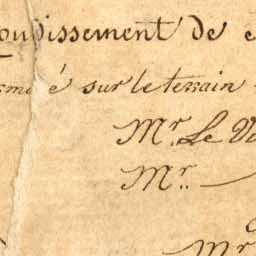 oudissement de
sur le terrain
Mr. Le V
Mr.
Mr